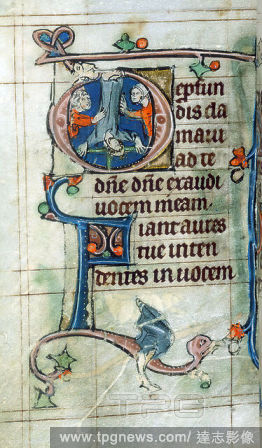 De profun
dis cla
maui
ad te
dñe dñe exaudi
uocem meam.
Fiant aures
tue inten
dentes in uocem
TPG
www.tpgnews.com / 達志影像